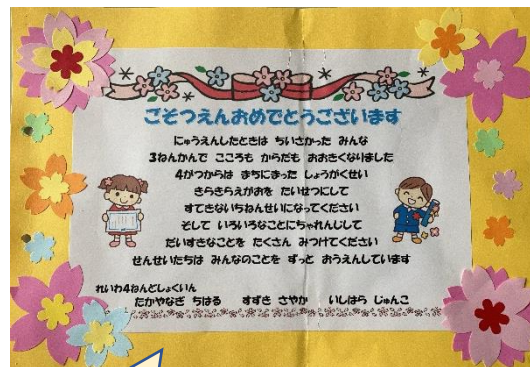 ごそつえんおめでとうございます
にゅうえんしたときは ちいさかった みんな
3ねんかんで こころも からだも おおきくなりました
4がつからは まちにまった しょうがくせい
きらきらえがおを たいせつにして
すてきないちねんせいになってください
そして いろいろなことにちゃれんじして
だいすきなことを たくさん みつけてください
せんせいたちは みんなのことを ずっと おうえんしています
れいわ4ねんどしょくいん
たかやなぎ ちはる すずき さやか いしはら じゅんこ